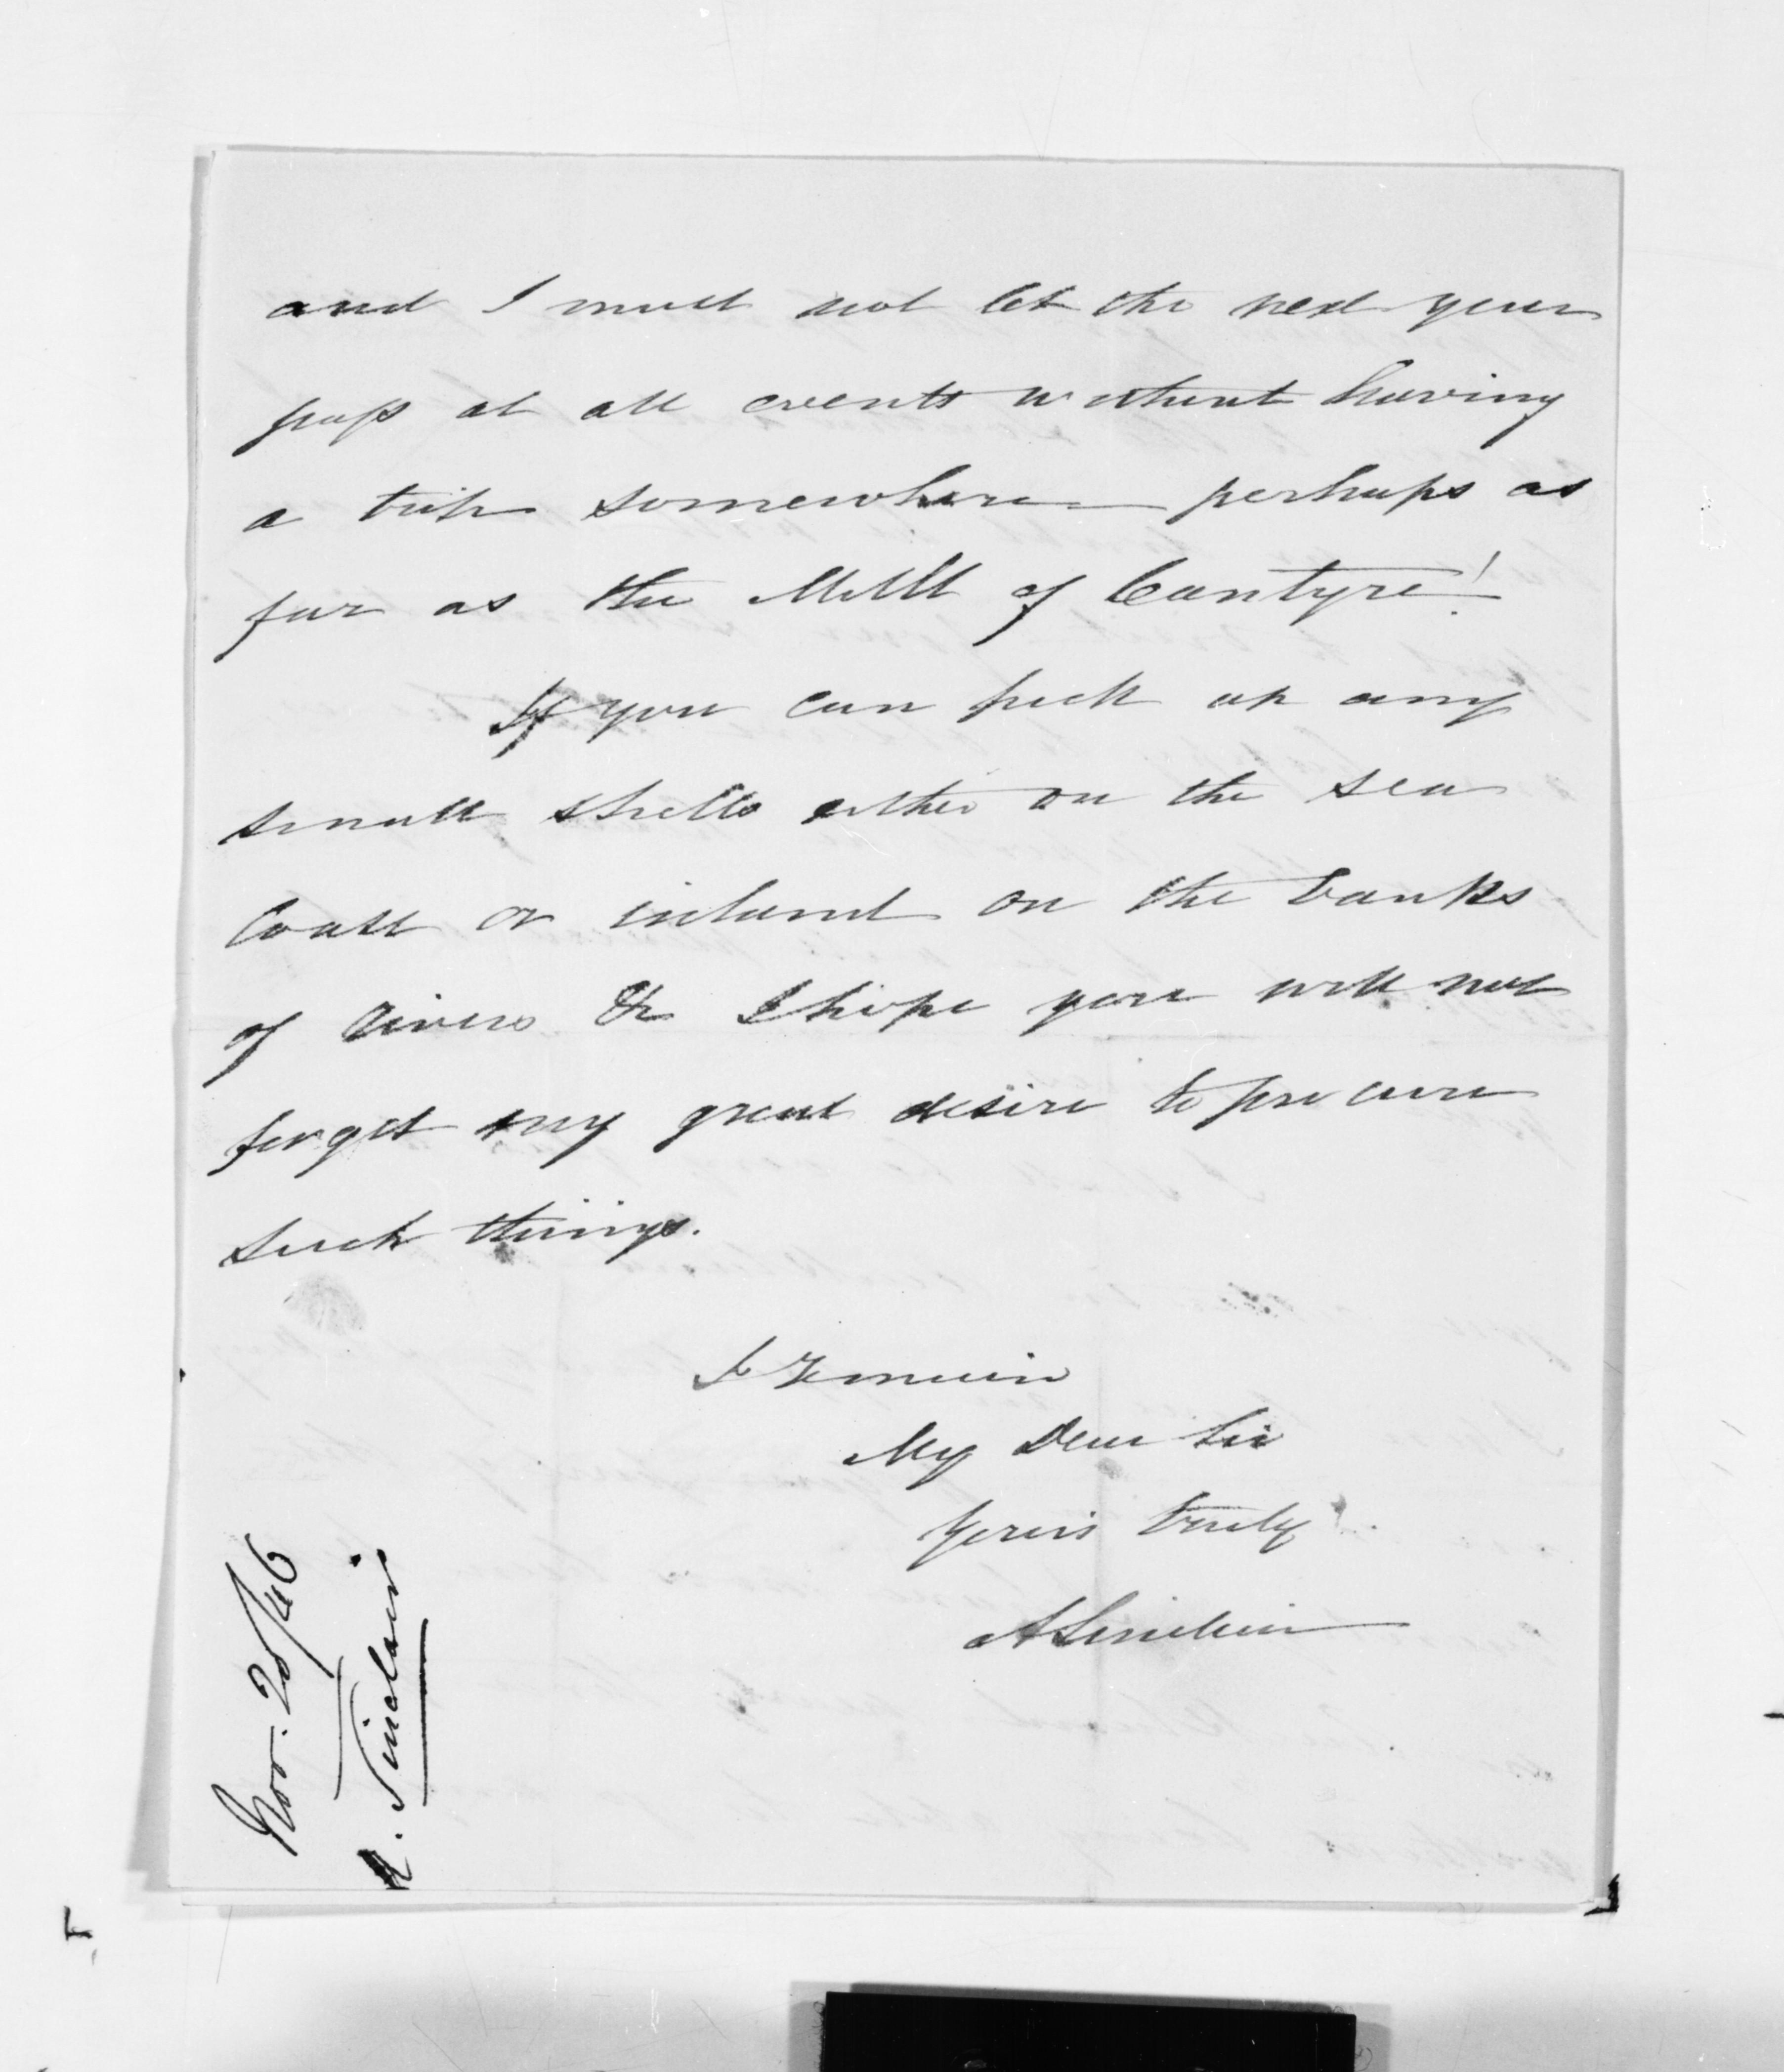 and I must not let the next year
pass at all events without having
a trip somewhere perhaps as
far as the Mull of Cantyre!
If you can pick up any
small shells either on the sea
Coast or inland on the banks
of rivers &c I hope you will not
forget my great desire to procure
such things.
I remain
My Dear Sir
Yours truly
A Sinclair
Nov. 20/46
A. Sinclair